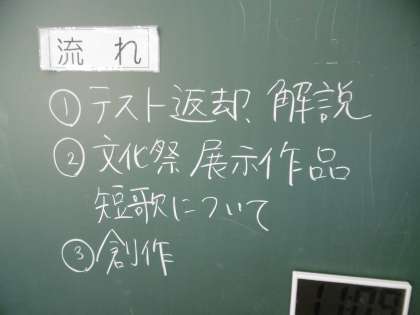 流れ
①テスト返却、解説
②文化祭展示作品
短歌について
③創作